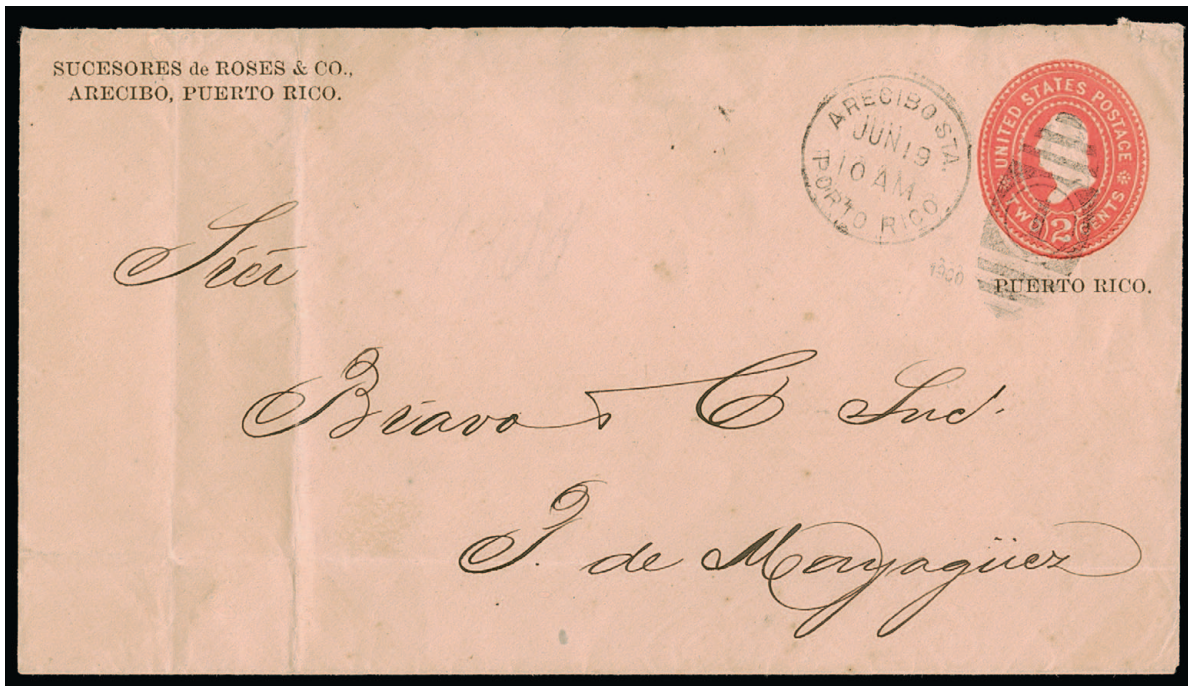 SUCESORES de ROSES & CO.,
ARECIBO, PUERTO RICO.
ARECIBO STA.
JUN 19
10 AM
PORTO RICO
1900
UNITED STATES POSTAGE
TWO 2 CENTS
PUERTO RICO.
Bravo & C Suc.
de Mayagüez